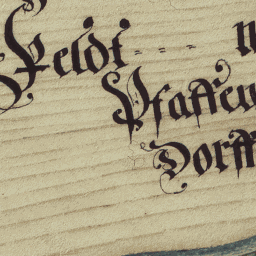 Feldt
Pfaffen
Dorff